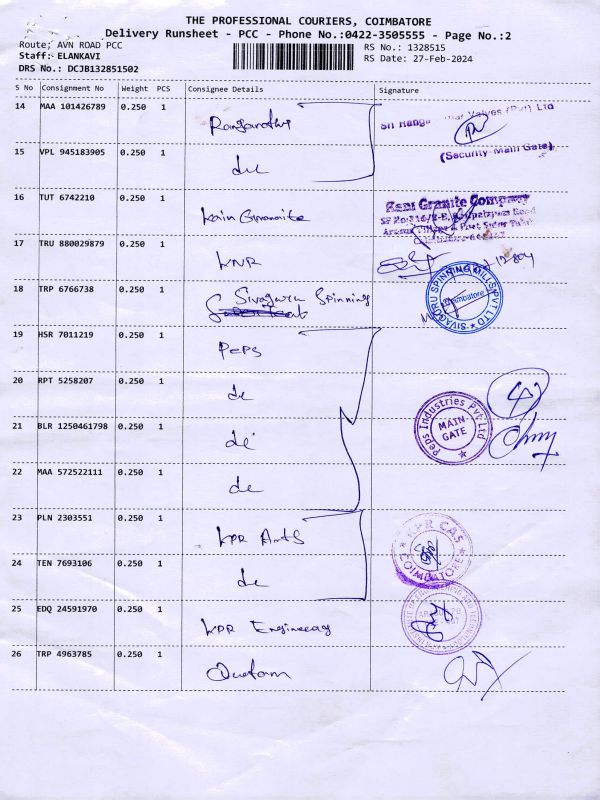 THE PROFESSIONAL COURIERS, COIMBATORE
Delivery Runsheet - PCC - Phone No.:0422-3505555 - Page No.:2
Route: AVN ROAD PCC
RS No.: 1328515
Staff: ELANKAVI
RS Date: 27-Feb-2024
DRS No.: DCJB132851502
S No Consignment No Weight PCS Consignee Details Signature
14 MAA 101426789 0.250 1
(Security-Main Gate)
15 VPL 945183905 0.250 1 do
16 TUT 6742210 0.250 1
Rani Granite Company
17 TRU 880029879 0.250 1 KNR
18 TRP 6766738 0.250 1 Sivaguru Spinning
SIVAGURU SPINNING MILLS PVT LTD
Coimbatore
19 HSR 7011219 0.250 1 Peps
20 RPT 5258207 0.250 1 do
21 BLR 1250461798 0.250 1 do
Peps Industries Pvt Ltd
MAIN GATE
22 MAA 572522111 0.250 1 do
23 PLN 2303551 0.250 1 KPR Arts
KPR CAS
COIMBATORE
24 TEN 7693106 0.250 1 do
25 EDQ 24591970 0.250 1 KPR Engineeag
26 TRP 4963785 0.250 1